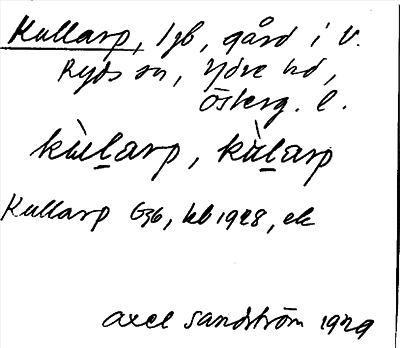 Kullarp, lgb, gård i V.
Ryds sn, Ydre hd,
Österg. l.
kùlarp, kùlarp
Kullarp G36, kb 1928, ek
Axel Sandström 1929